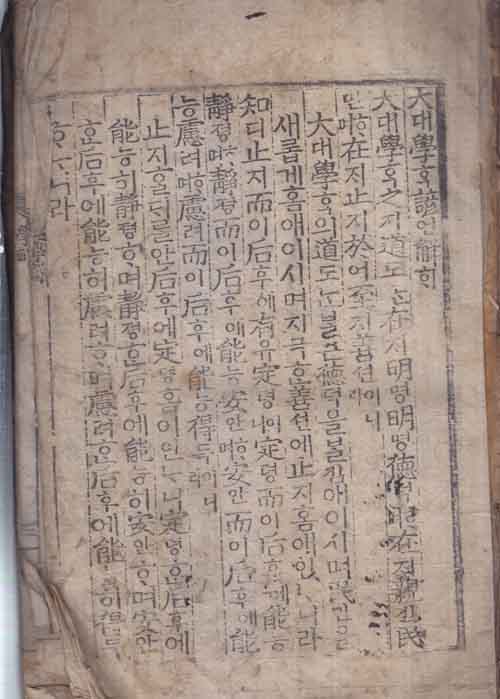 大대學ᄒᆞᆨ諺언解ᄒᆡ
大대學ᄒᆞᆨ之지道도ᄂᆞᆫ在ᄌᆡ明명明명德덕ᄒᆞ며在ᄌᆡ親신民
민ᄒᆞ며在ᄌᆡ止지於어至지善션이니라
大대學ᄒᆞᆨ의道도ᄂᆞᆫ불근德덕을불킴애이시며民민을
새롭게홈애이시며지극ᄒᆞᆫ善션에止지홈애인ᄂᆞ니라
知디止지而이后후에有유定뎡이니定뎡而이后후에能능
靜졍ᄒᆞ며靜졍而이后후에能능安안ᄒᆞ며安안而이后후에能
능慮려ᄒᆞ며慮려而이后후에能능得득이니라
止지ᄒᆞᆯᄃᆡ를안后후에定뎡홈이인ᄂᆞ니定뎡ᄒᆞᆫ后후에
能능히靜졍ᄒᆞ며靜졍ᄒᆞᆫ后후에能능히安안ᄒᆞ며安안
ᄒᆞᆫ后후에能능히慮려ᄒᆞ며慮려ᄒᆞᆫ后후에能능히得득
ᄒᆞᄂᆞ니라